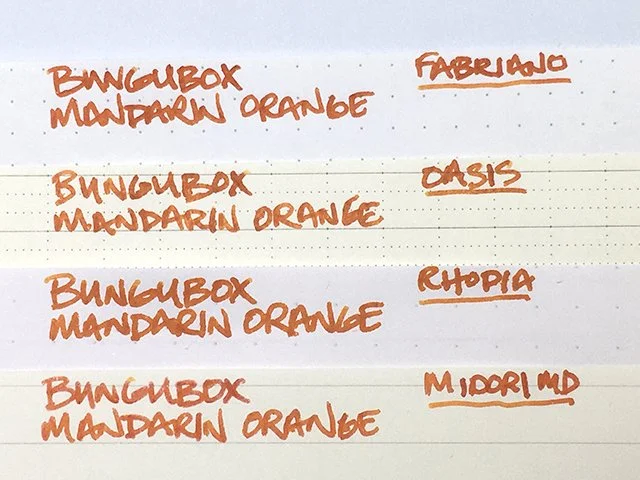 BUNGUBOX
MANDARIN ORANGE
FABRIANO
BUNGUBOX
MANDARIN ORANGE
OASIS
BUNGUBOX
MANDARIN ORANGE
RHODIA
BUNGUBOX
MANDARIN ORANGE
MIDORI MD